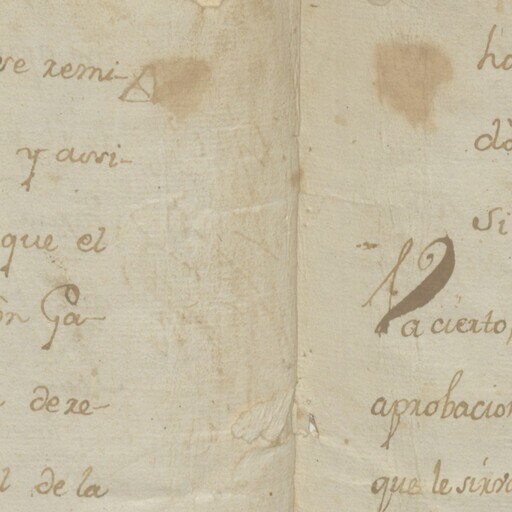 se remi-
y avri-
que el
on Ga-
dere-
de la
ha
dó
si
a cierto,
aprobacion
que le sirva